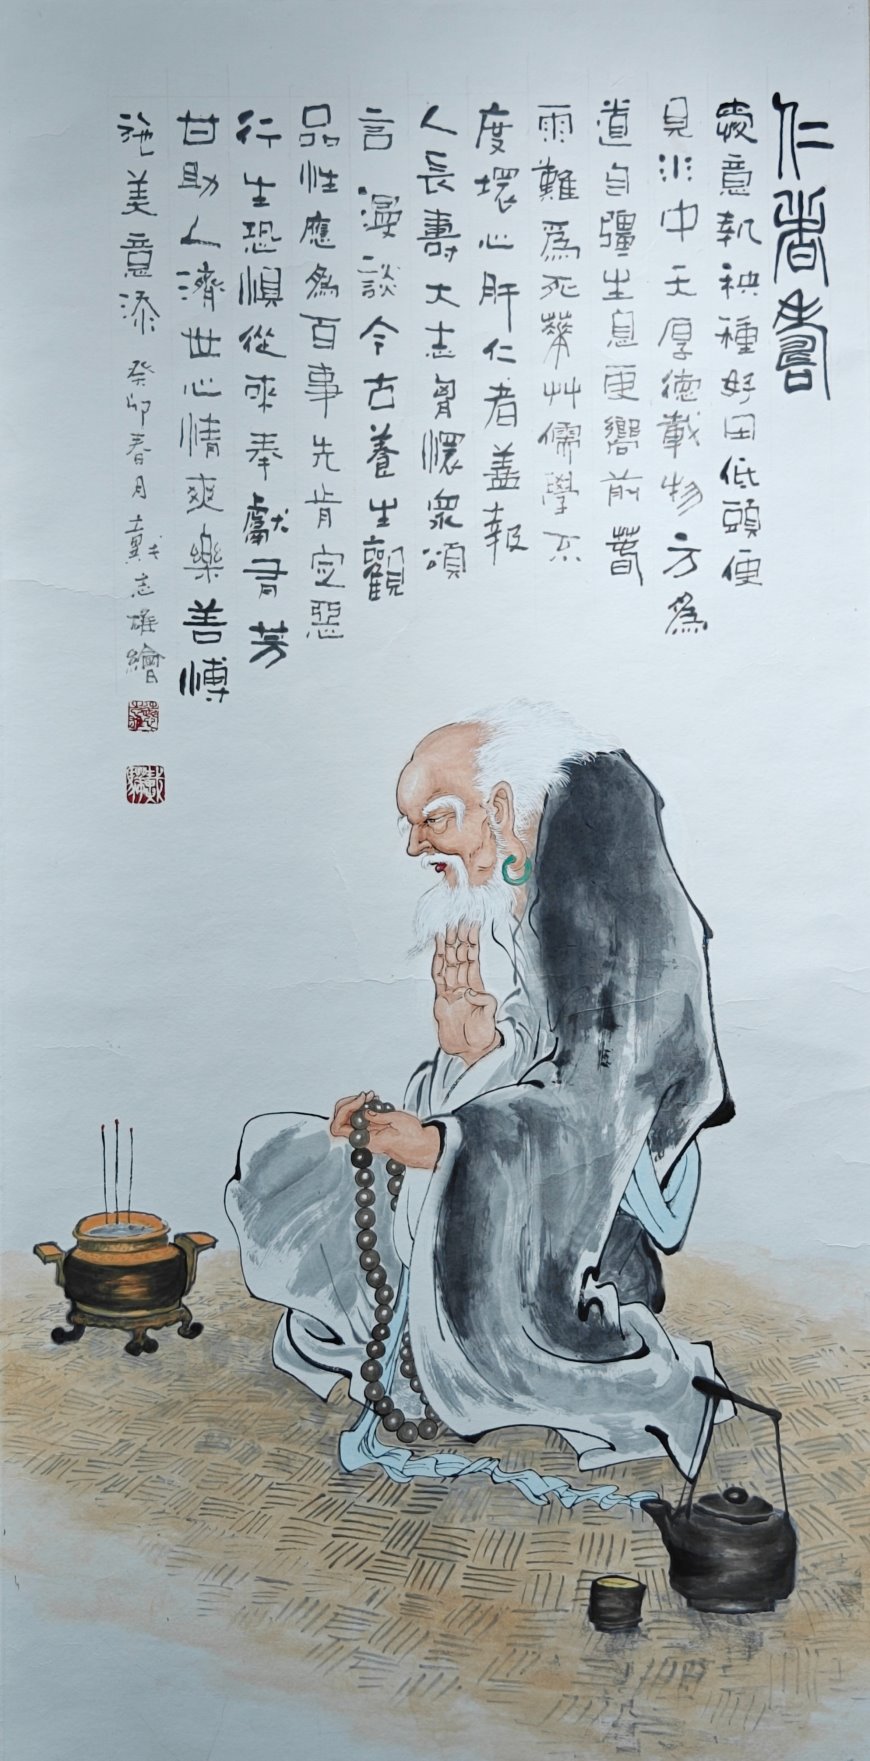 仁者壽
爰意執秧種好田低頭便
見水中天厚德載物方爲
道自彊生息更嚮前暮
雨難爲死草艸儒學不
度壞心肝仁者蓋報
人長壽大志胷懷衆頌
言漫談今古養生觀
品性應爲百事先肯定惡
行生恐惧從來奉獻有芳
甘助人濟世心情爽樂善博
施美意添 癸卯春月 戴志雄繪